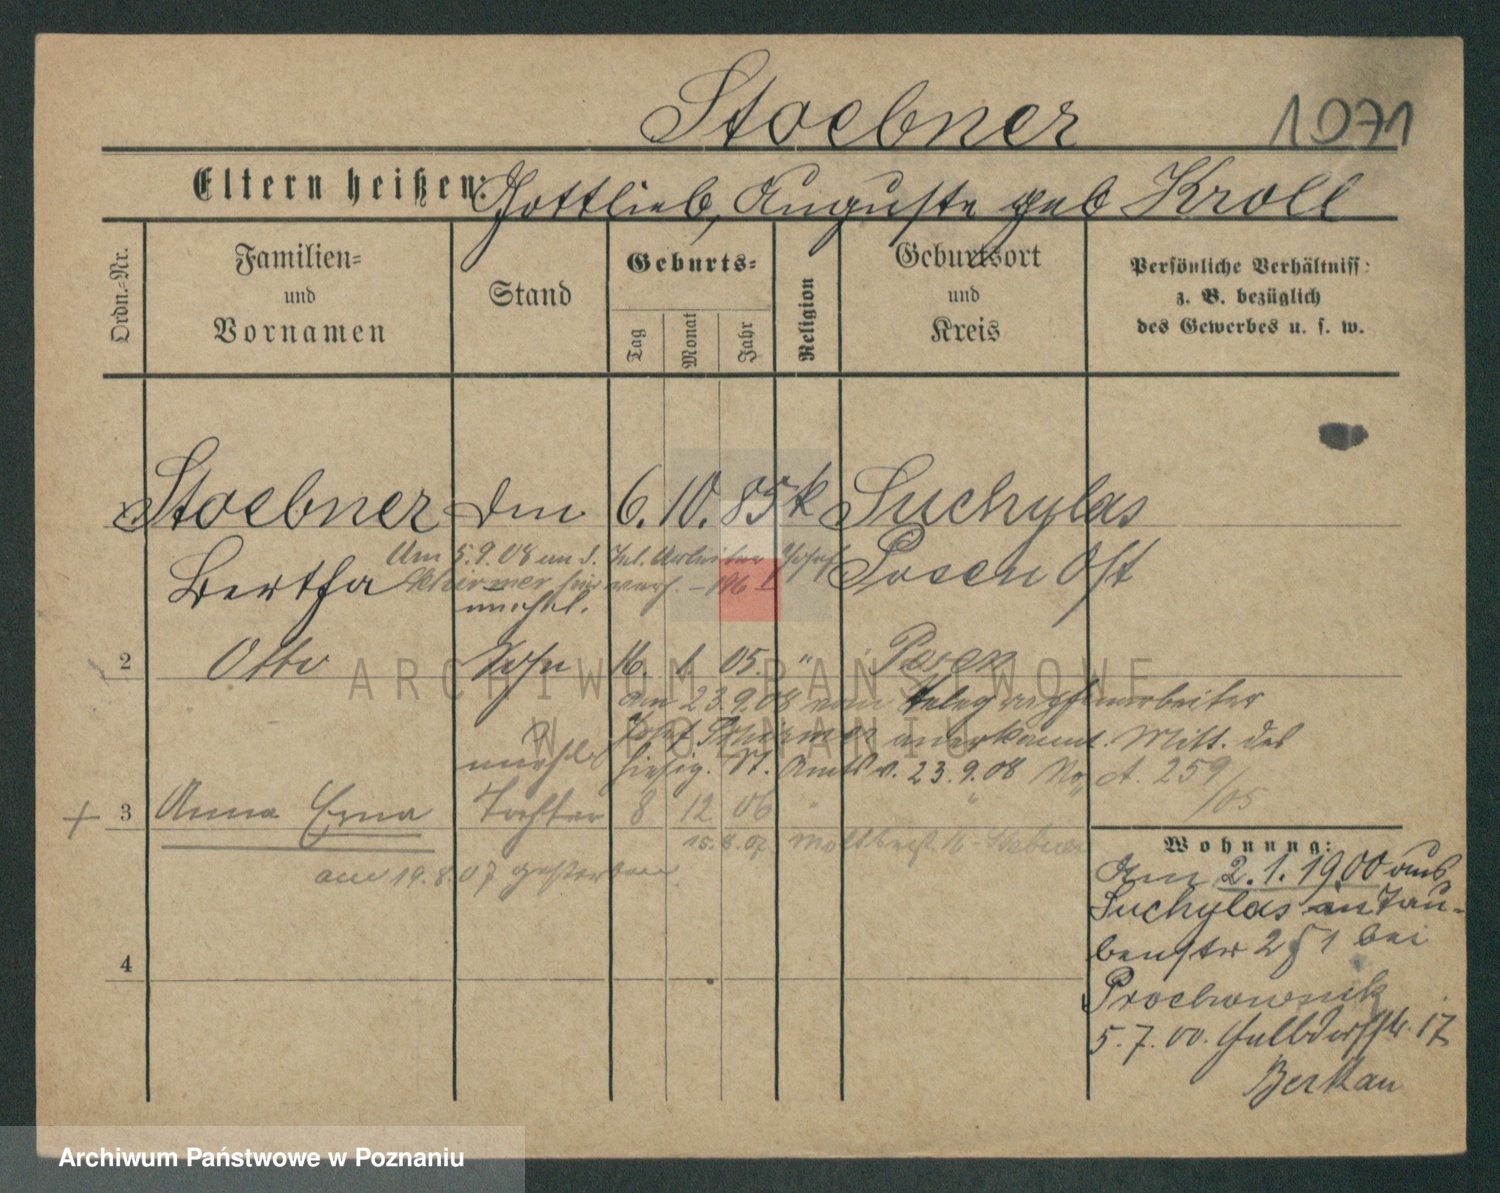 Stoebner 1071
Eltern heißen: Gottlieb, Auguste geb Kroll
Ordn.=Nr.
Familien=
und
Vornamen
Stand
Geburts=
Tag
Monat
Jahr
Religion
Geburtsort
und
Kreis
Persönliche Verhältniss:
z. B. bezüglich
des Gewerbes u. s. w.
Stoebner 6. 10. 85 k Suchylas
Am 5.9.08 an d. Tel. Arbeiter Josef
Bertha verh. Posen Ost
2 Otto Sohn 16. 1 05. " Posen
am 23.9.08 vom Telegraphenarbeiter
Josef anerkannt. Mitt. des
unehl. hiesig. St. Amts v. 23.9.08 No A. 259/05
+ 3 Anna Erna Tochter 8 12 06 " "
15.8.07.
am 19.8.07 gestorben
4
Wohnung:
Am 2.1.1900 aus
Suchylas in Tau-
benstr 2 I bei
Prochownik
5.7.00. 17
Berkau
ARCHIWUM PAŃSTWOWE
W POZNANIU
Archiwum Państwowe w Poznaniu